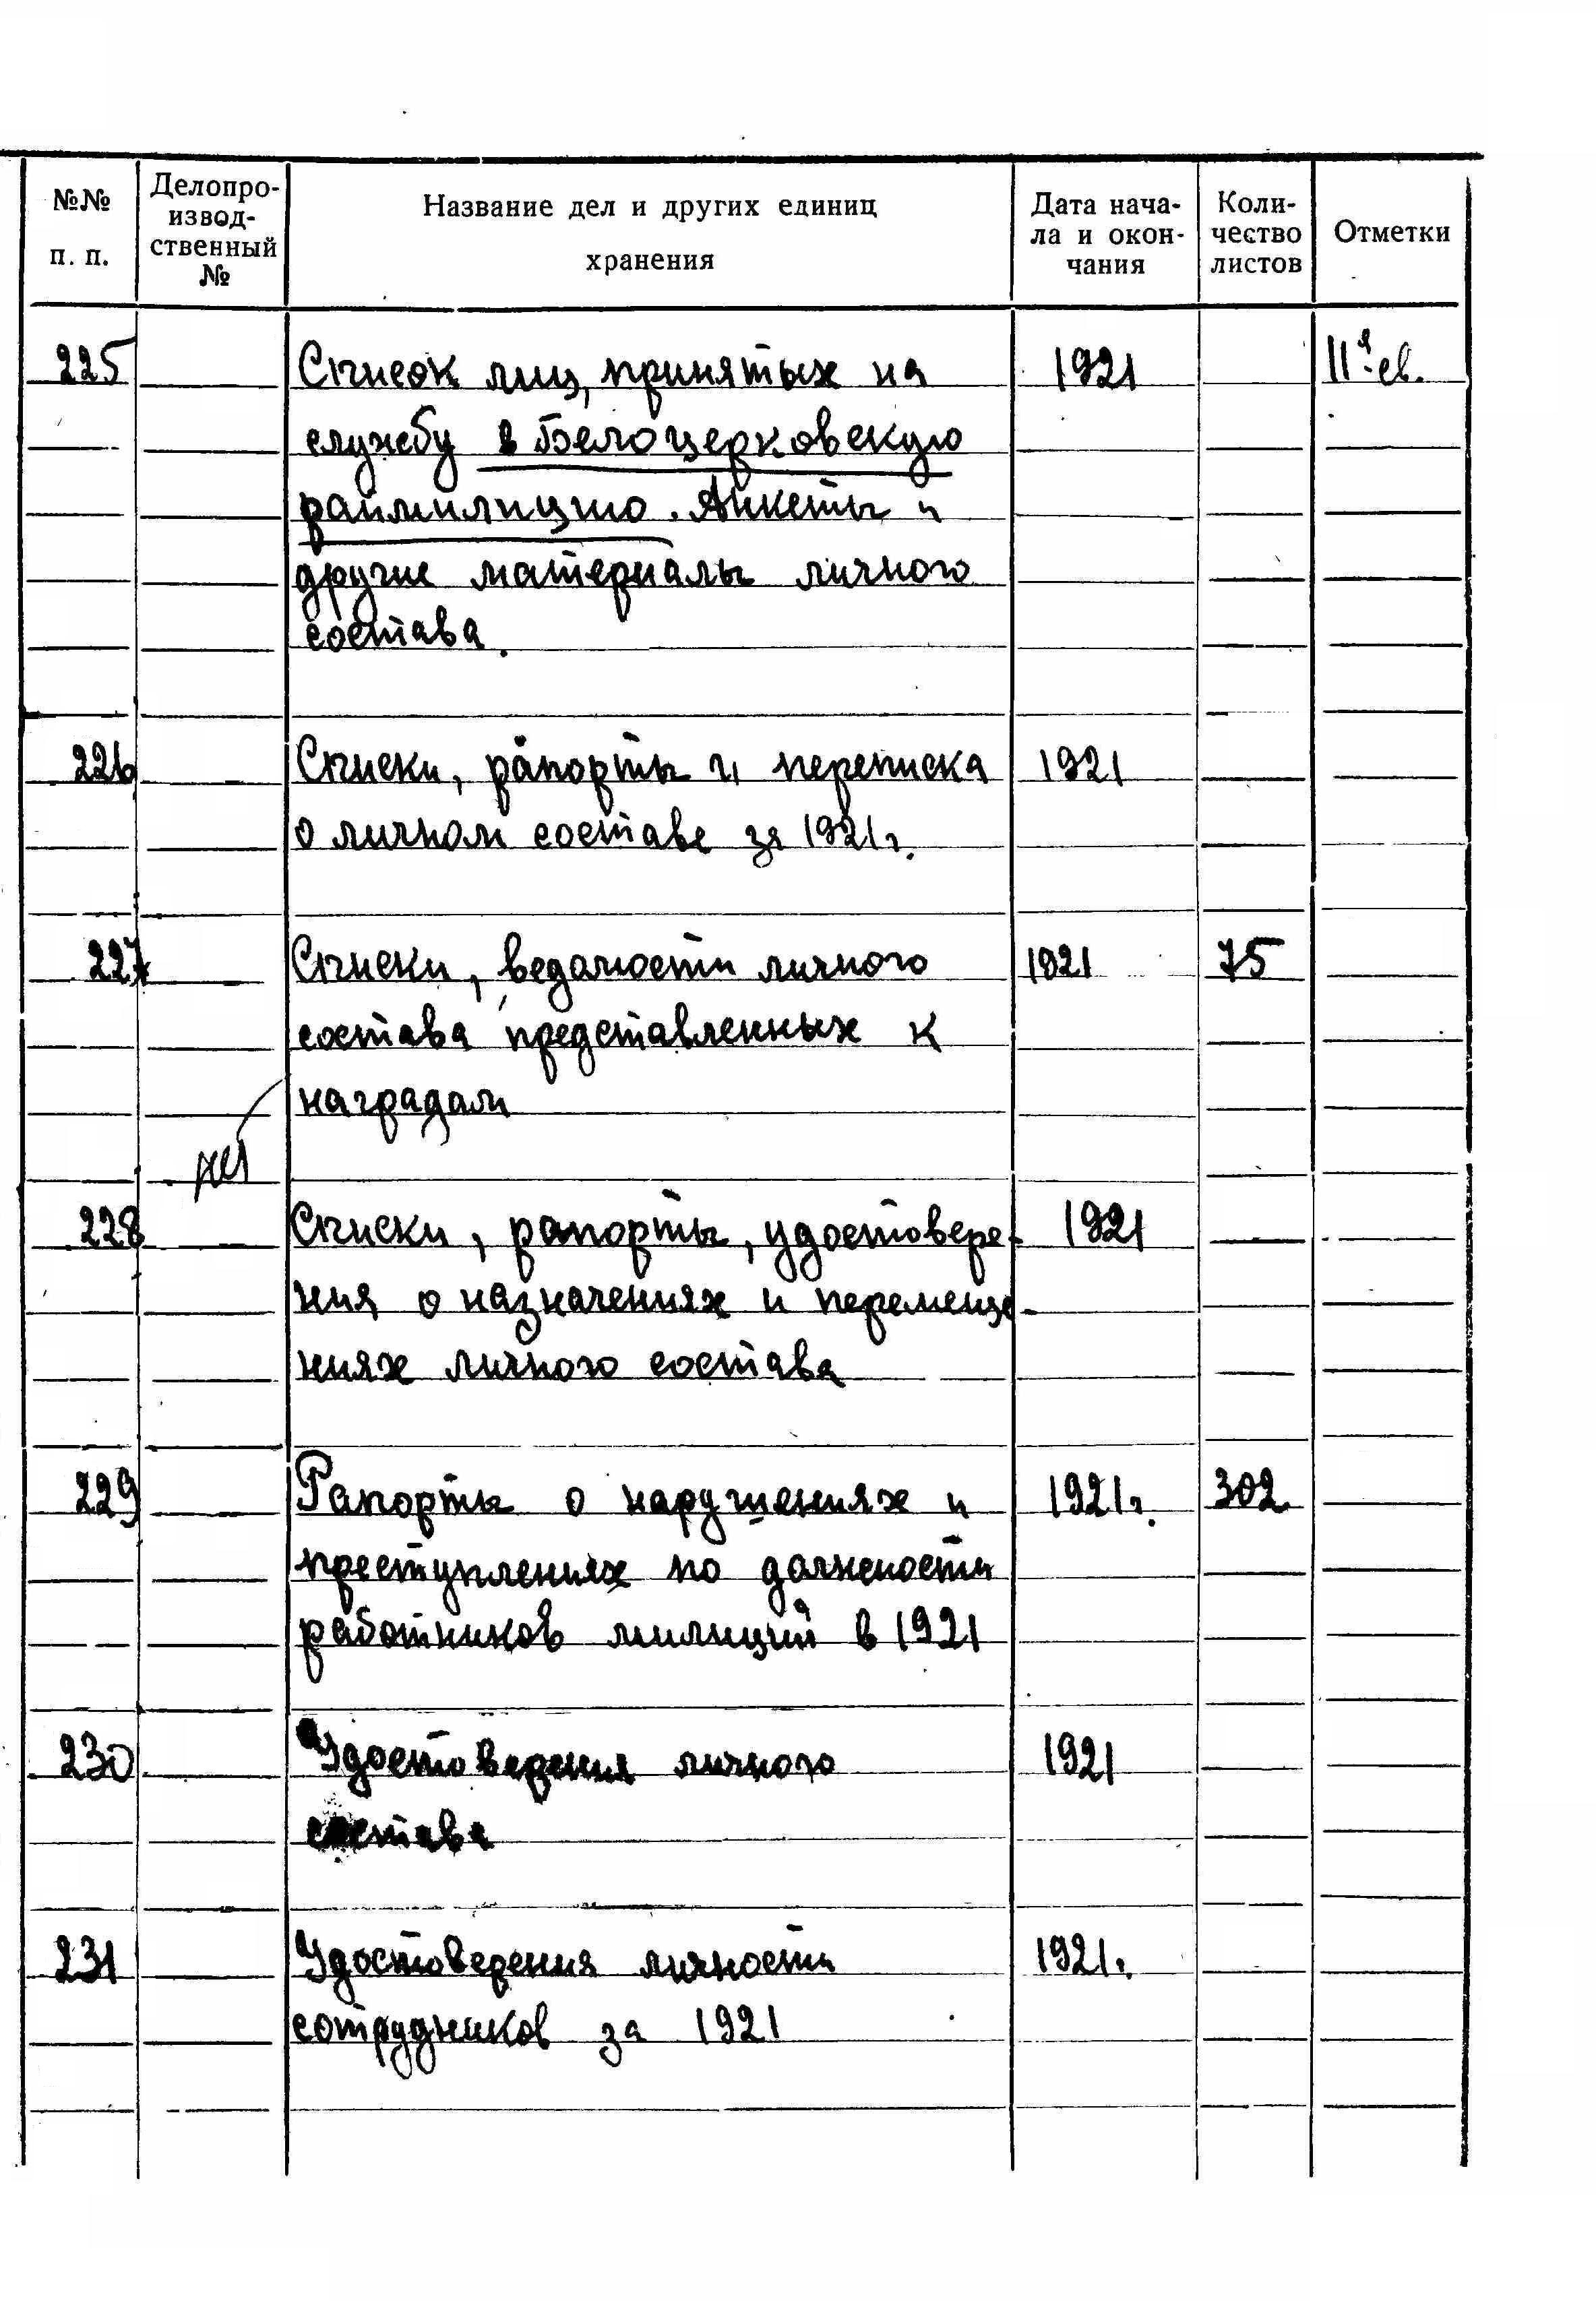 №№ п. п.
Делопро-
извод-
ственный
№
Название дел и других единиц
хранения
Дата нача-
ла и окон-
чания
Коли-
чество
листов
Отметки
225 Список лиц, принятых на 1921
службу в Белоцерковскую
раймилицию. Анкеты и
другие материалы личного
состава.
226 Списки, рапорты и переписка 1921
о личном составе за 1921г.
227 Списки, ведомости личного 1921 75
состава, представленных к
наградам
228 Списки, рапорты, удостовере- 1921
ния о назначениях и перемеще-
ниях личного состава
229 Рапорты о нарушениях и 1921г. 302
преступлениях по должности
работников милиций в 1921
230 Удостоверения личного 1921
состава
231 Удостоверения личности 1921г.
сотрудников за 1921